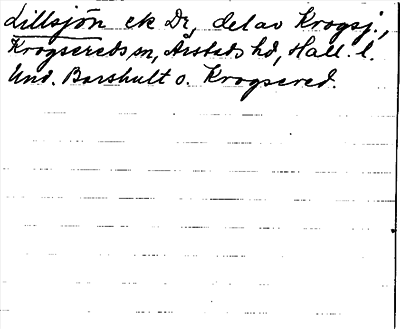 Lillsjön ek Dr, del av Krogsj.,
Krogsereds sn, Årstads hd, Hall. l.
Und. Barshult o. Krogsered.